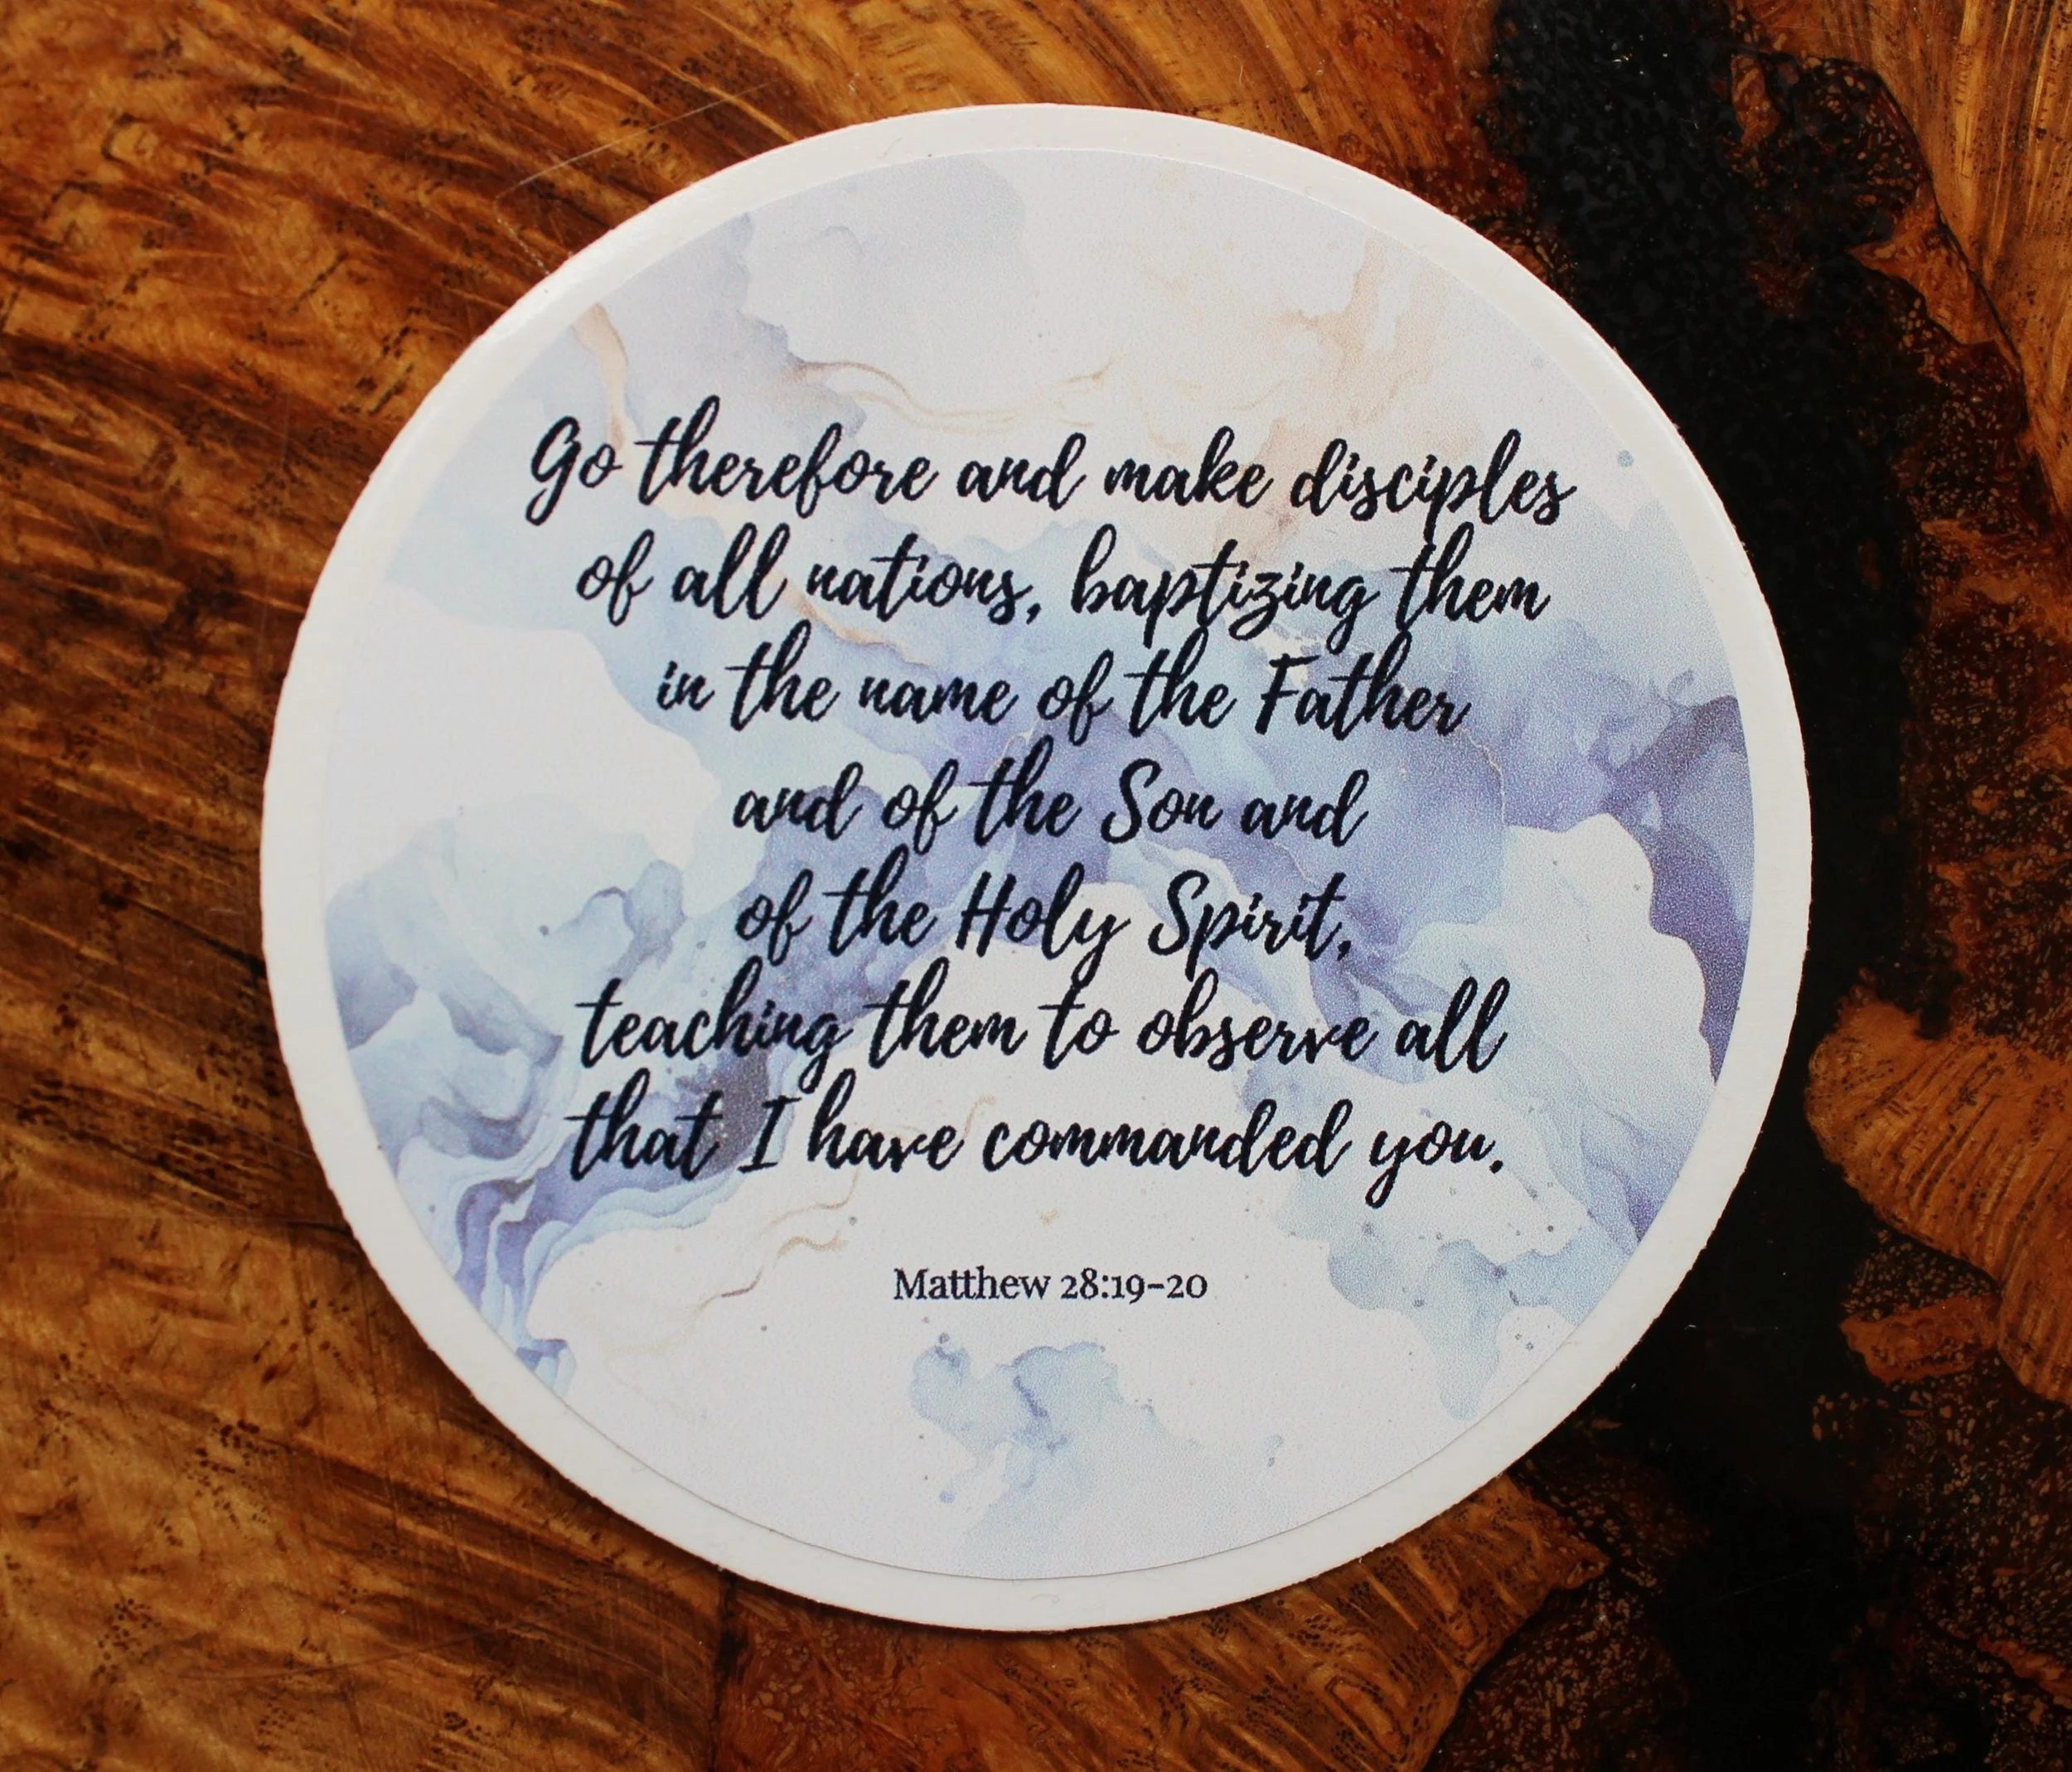 Go therefore and make disciples
of all nations, baptizing them
in the name of the Father
and of the Son and
of the Holy Spirit,
teaching them to observe all
that I have commanded you.
Matthew 28:19-20